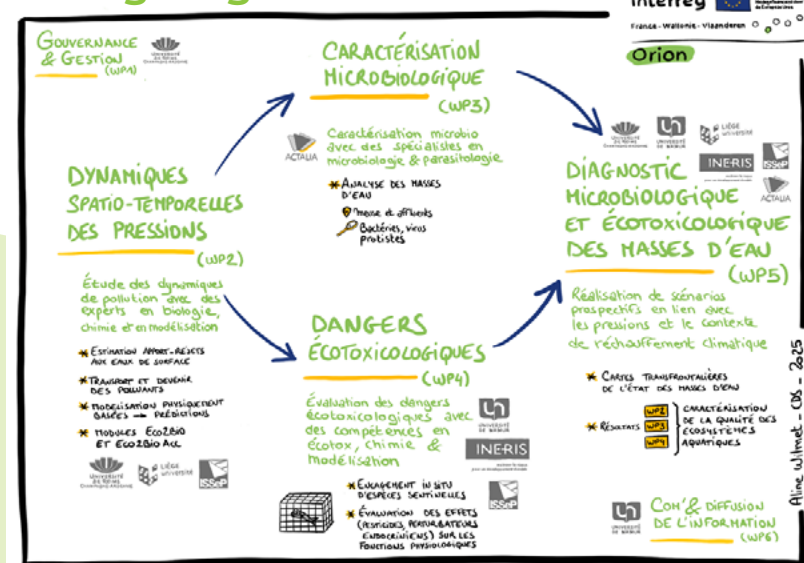 Interreg
France - Wallonie - Vlaanderen
Orion
GOUVERNANCE
& GESTION
(WP1)
UNIVERSITÉ
DE REIMS
CHAMPAGNE-ARDENNE
DYNAMIQUES
SPATIO-TEMPORELLES
DES PRESSIONS
(WP2)
Étude des dynamiques
de pollution avec des
experts en biologie,
chimie et en modélisation
* ESTIMATION APPORT-REJETS
AUX EAUX DE SURFACE
* TRANSPORT ET DEVENIR
DES POLLUANTS
* MODÉLISATION PHYSIQUEMENT
BASÉES → PRÉDICTIONS
* MODULES ECO2BIO
ET ECO2BIO ACC
UNIVERSITÉ
DE REIMS
CHAMPAGNE-ARDENNE
LIÈGE
université
ISSeP
CARACTÉRISATION
MICROBIOLOGIQUE
(WP3)
ACTALIA
Caractérisation microbio
avec des spécialistes en
microbiologie & parasitologie
* ANALYSE DES MASSES
D'EAU
Meuse et affluents
Bactéries, virus
protistes
DANGERS
ÉCOTOXICOLOGIQUES
(WP4)
Évaluation des dangers
écotoxicologiques avec
des compétences en
écotox, chimie &
modélisation
UNIVERSITÉ
DE NAMUR
INERIS
ISSeP
* ENCAGEMENT IN SITU
D'ESPÈCES SENTINELLES
* ÉVALUATION DES EFFETS
(PESTICIDES, PERTURBATEURS
ENDOCRINIENS) SUR LES
FONCTIONS PHYSIOLOGIQUES
UNIVERSITÉ
DE REIMS
CHAMPAGNE-ARDENNE
UNIVERSITÉ
DE NAMUR
LIÈGE
université
INERIS
ISSeP
ACTALIA
DIAGNOSTIC
MICROBIOLOGIQUE
ET ÉCOTOXICOLOGIQUE
DES MASSES D'EAU
(WP5)
Réalisation de scénarios
prospectifs en lien avec
les pressions et le contexte
de réchauffement climatique
* CARTES TRANSFRONTALIÈRES
DE L'ÉTAT DES MASSES D'EAU
* RÉSULTATS
WP2
WP3
WP4
CARACTÉRISATION
DE LA QUALITÉ DES
ÉCOSYSTÈMES
AQUATIQUES
UNIVERSITÉ
DE NAMUR
COM' & DIFFUSION
DE L'INFORMATION
(WP6)
Aline Wilmet _ CDS - 2025